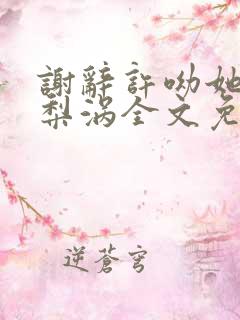 謝辭許呦她
梨涡全文免
逆蒼穹